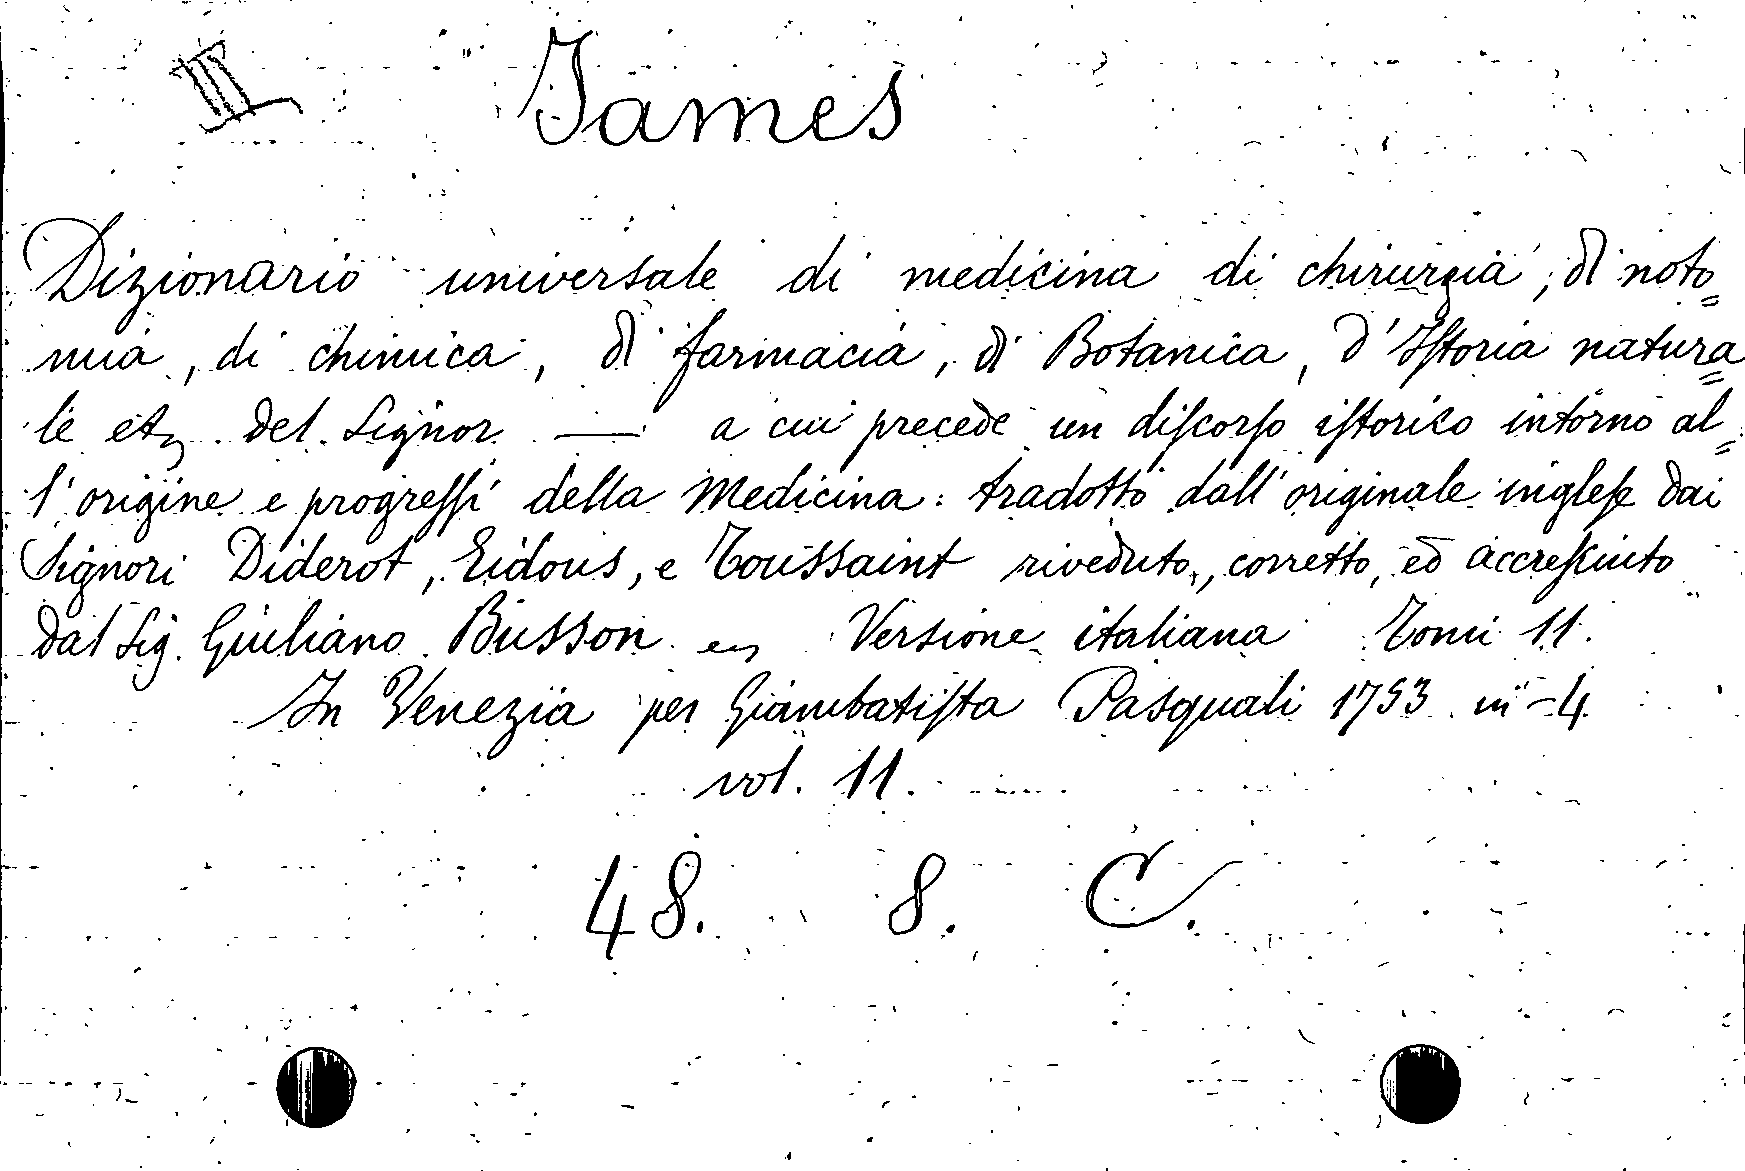 III James
Dizionario universale di medicina di chirurgia, di noto=
mia, di chimica, di farmacia, di Botanica, d'Iſtoria natura=
le etz del Signor — a cui precede un diſcorſo iſtorico intorno al=
l'origine e progreſſi della Medicina: tradotto dall'originale ingleſe dai
Signori Diderot, Eidous, e Toussaint riveduto, corretto, ed accreſciuto
dal Sig. Giuliano Busson Versione italiana Tomi 11.
In Venezia per Giambatiſta Pasquali 1753 in-4
vol. 11.
48. 8. C.